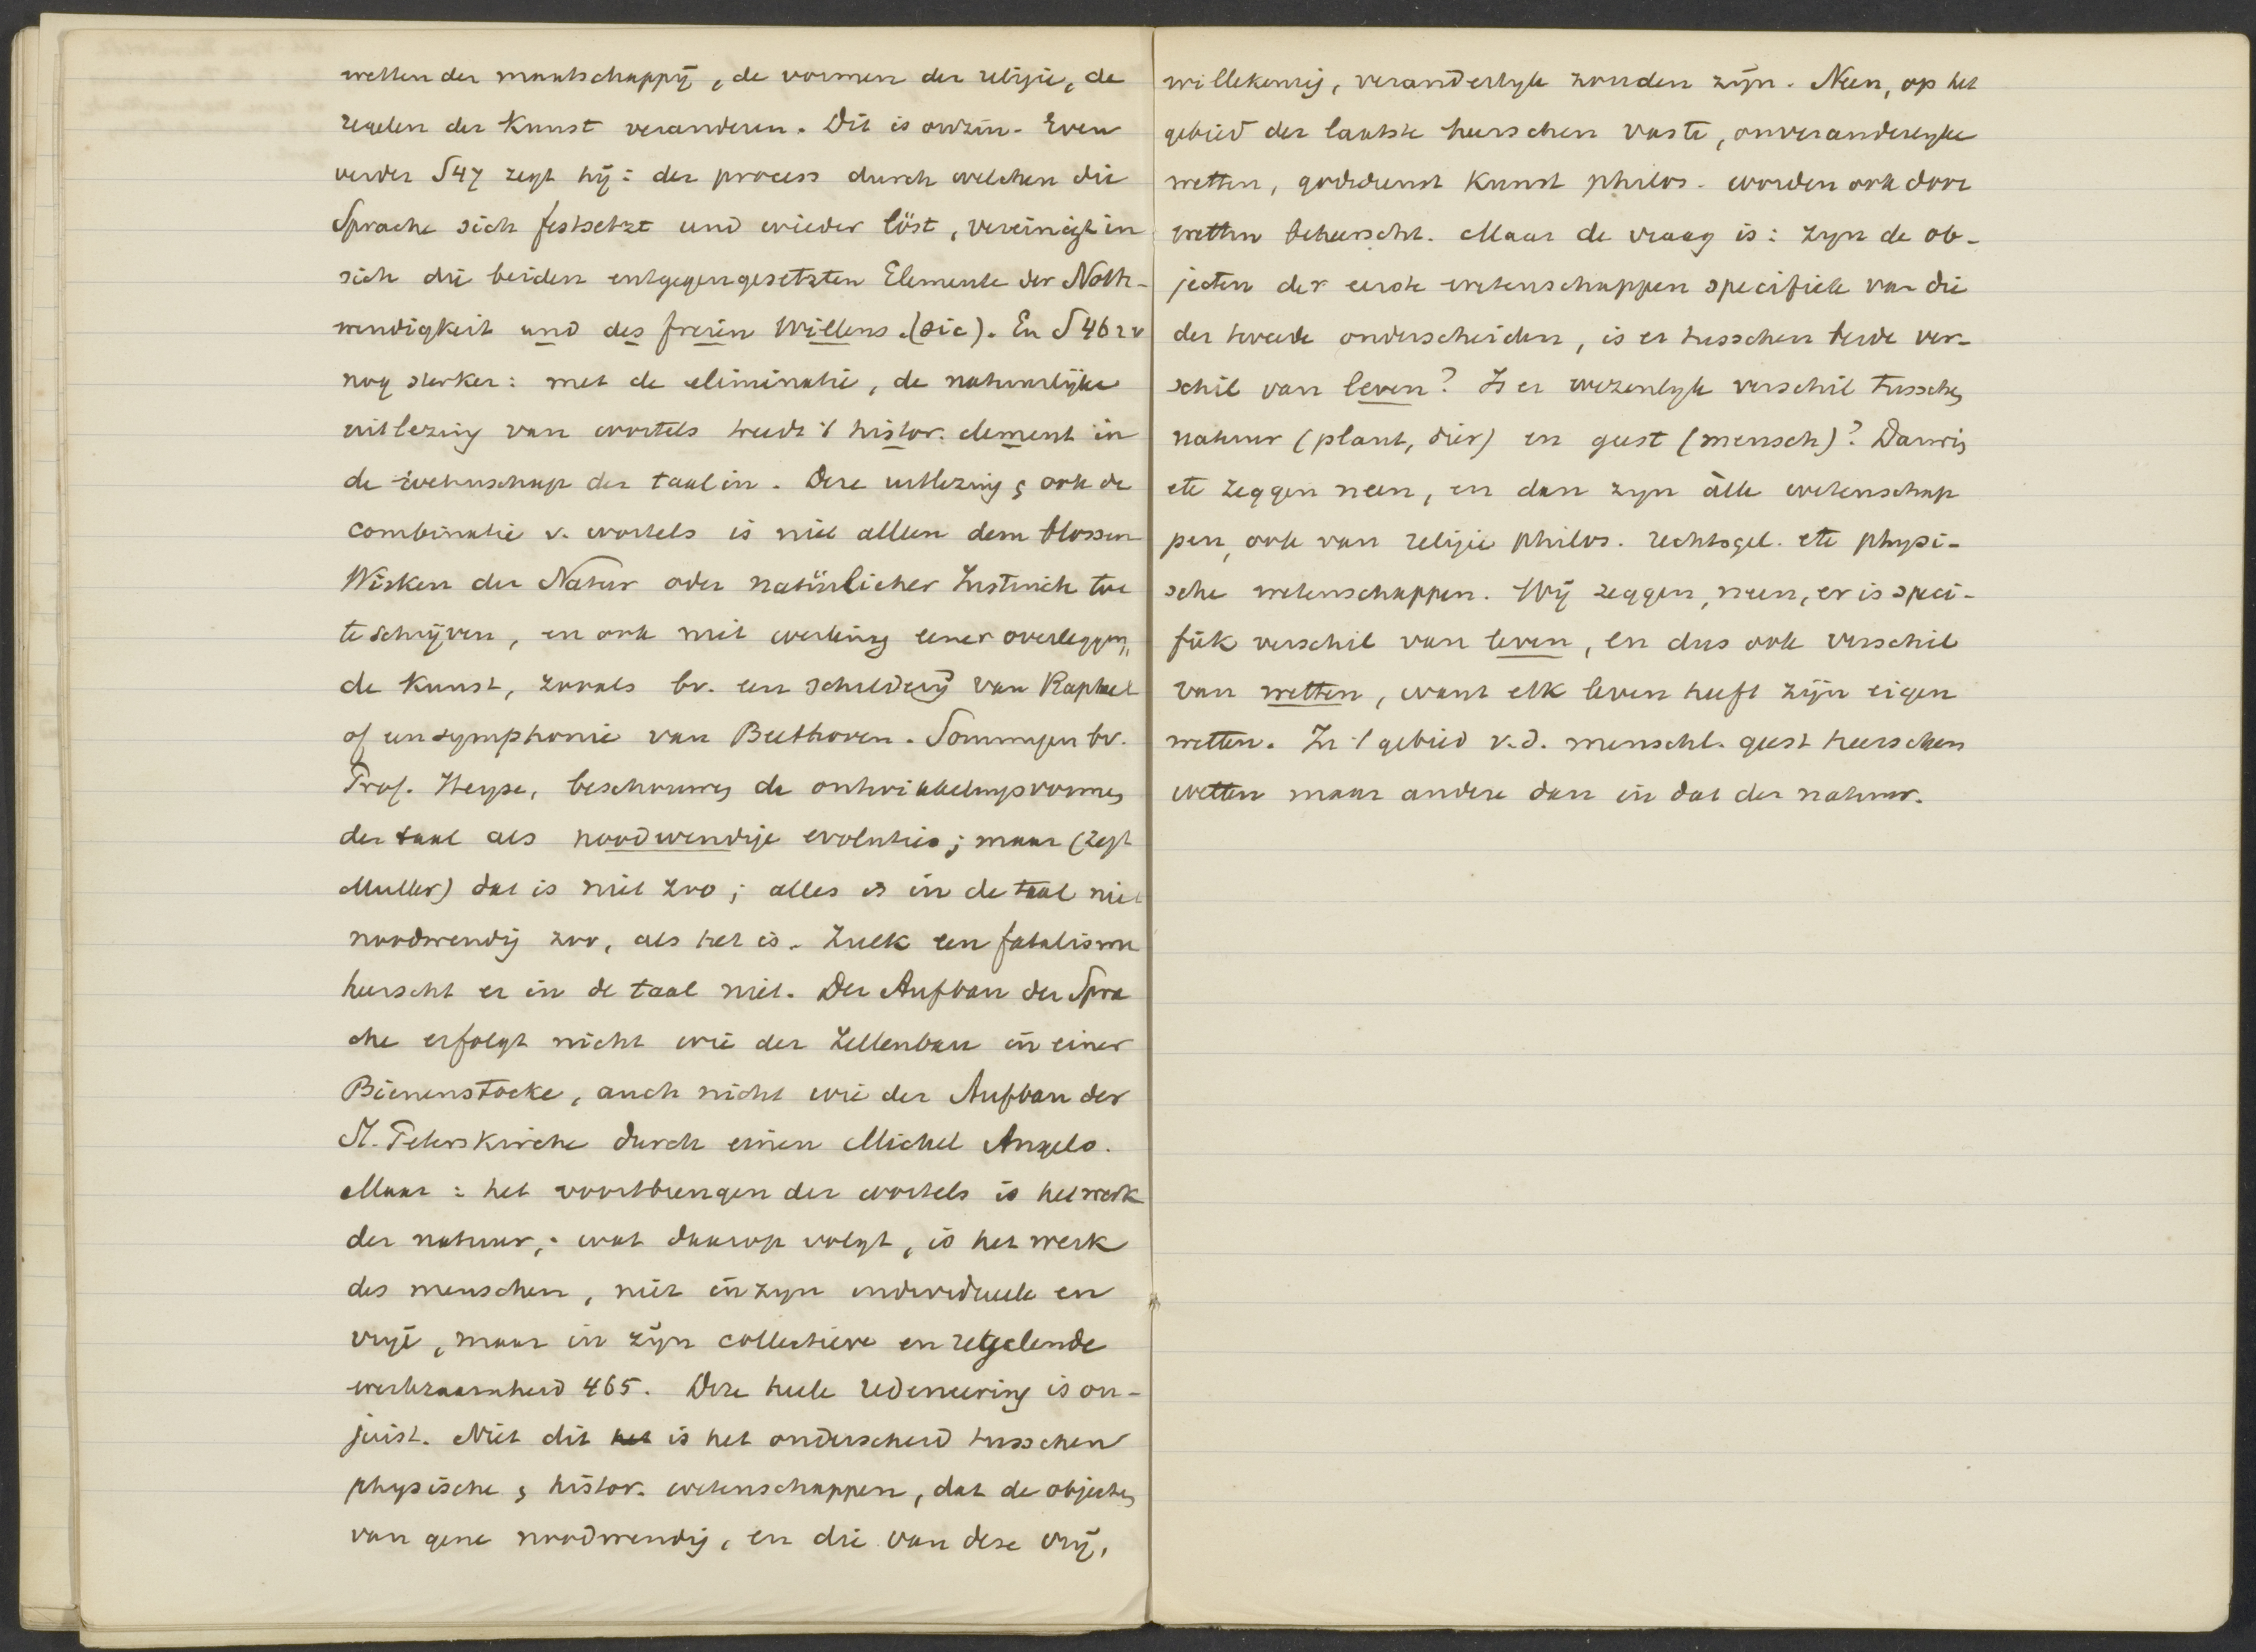 wetten der maatschappij, de vormen der religie, de
regelen der kunst veranderen. Dit is onzin. Even
verder S 47 zegt hij: der process durch welchen die
Sprache sich festsetzt und wieder löst, vereinigt in
sich die beiden entgegengesetzten Elemente der Noth-
wendigkeit und des freien Willens. (sic). En S 462 v
nog sterker: met de eliminatie, de natuurlijke
uitlezing van wortels treedt 't histor. element in
de wetenschap der taal in. Deze uitlezing & ook de
combinatie v. wortels is niet alleen dem blossen
Wirken der Natur oder natürlicher Instinch toe
te schrijven, en ook niet werking eener overleggen,,
de kunst, zooals bv. een schilderij van Raphael
of een symphonie van Beethoven. Sommigen bv.
Prof. Heyse, beschouwen de ontwikkelingsvormen
der taal als noodwendige evoluties; maar (zegt
Muller) dat is niet zoo; alles is in de taal niet
noodwendig zoo, als het is. Zulk een fatalisme
heerscht er in de taal niet. Der Aufbau der Spra
che erfolgt nicht wie der Zellenbau in einer
Bienenstocke, auch nicht wie der Aufbau der
St. Peterskirche durch einen Michel Angelo.
Maar: het voortbrengen der wortels is het werk
der natuur; wat daarop volgt, is het werk
des menschen, niet in zyn individueele en
vrije, maar in zijn collectieve en regelende
werkzaamheid 465. Deze heele redeneering is on-
juist. Niet dit het is het onderscheid tusschen
physische & histor. wetenschappen, dat de objecten
van gene noodwendig, en die van deze vrij,
willekeurig, veranderlyk zouden zijn. Neen, op het
gebied der laatste heerschen vaste, onveranderlyke
wetten, godsdienst kunst philos. worden ook door
wetten beheerscht. Maar de vraag is: zyn de ob-
jecten der eerste wetenschappen specifiek van die
der tweede onderscheiden, is er tusschen beide ver-
schil van leven? Is er wezenlyk verschil tusschen
natuur (plant, dier) en geest (mensch)? Darwin
etc zeggen neen, en dan zyn àlle wetenschap
pen, ook van religie philos. rechtsgel. etc physi-
sche wetenschappen. Wij zeggen, neen, er is speci-
fiek verschil van leven, en dus ook verschil
van wetten, want elk leven heeft zijn eigen
wetten. In 't gebied v.d. menschl. geest heerschen
wetten maar andere dan in dat der natuur.